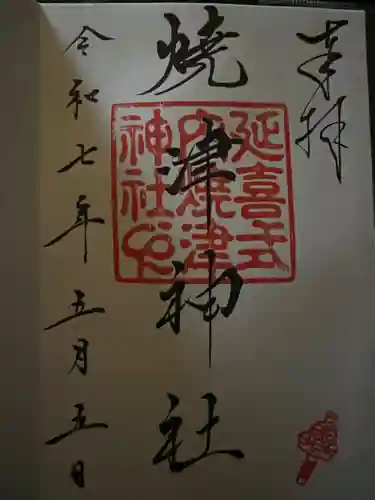 奉拝
焼津神社
延喜式
内焼津
神社
令和七年五月五日